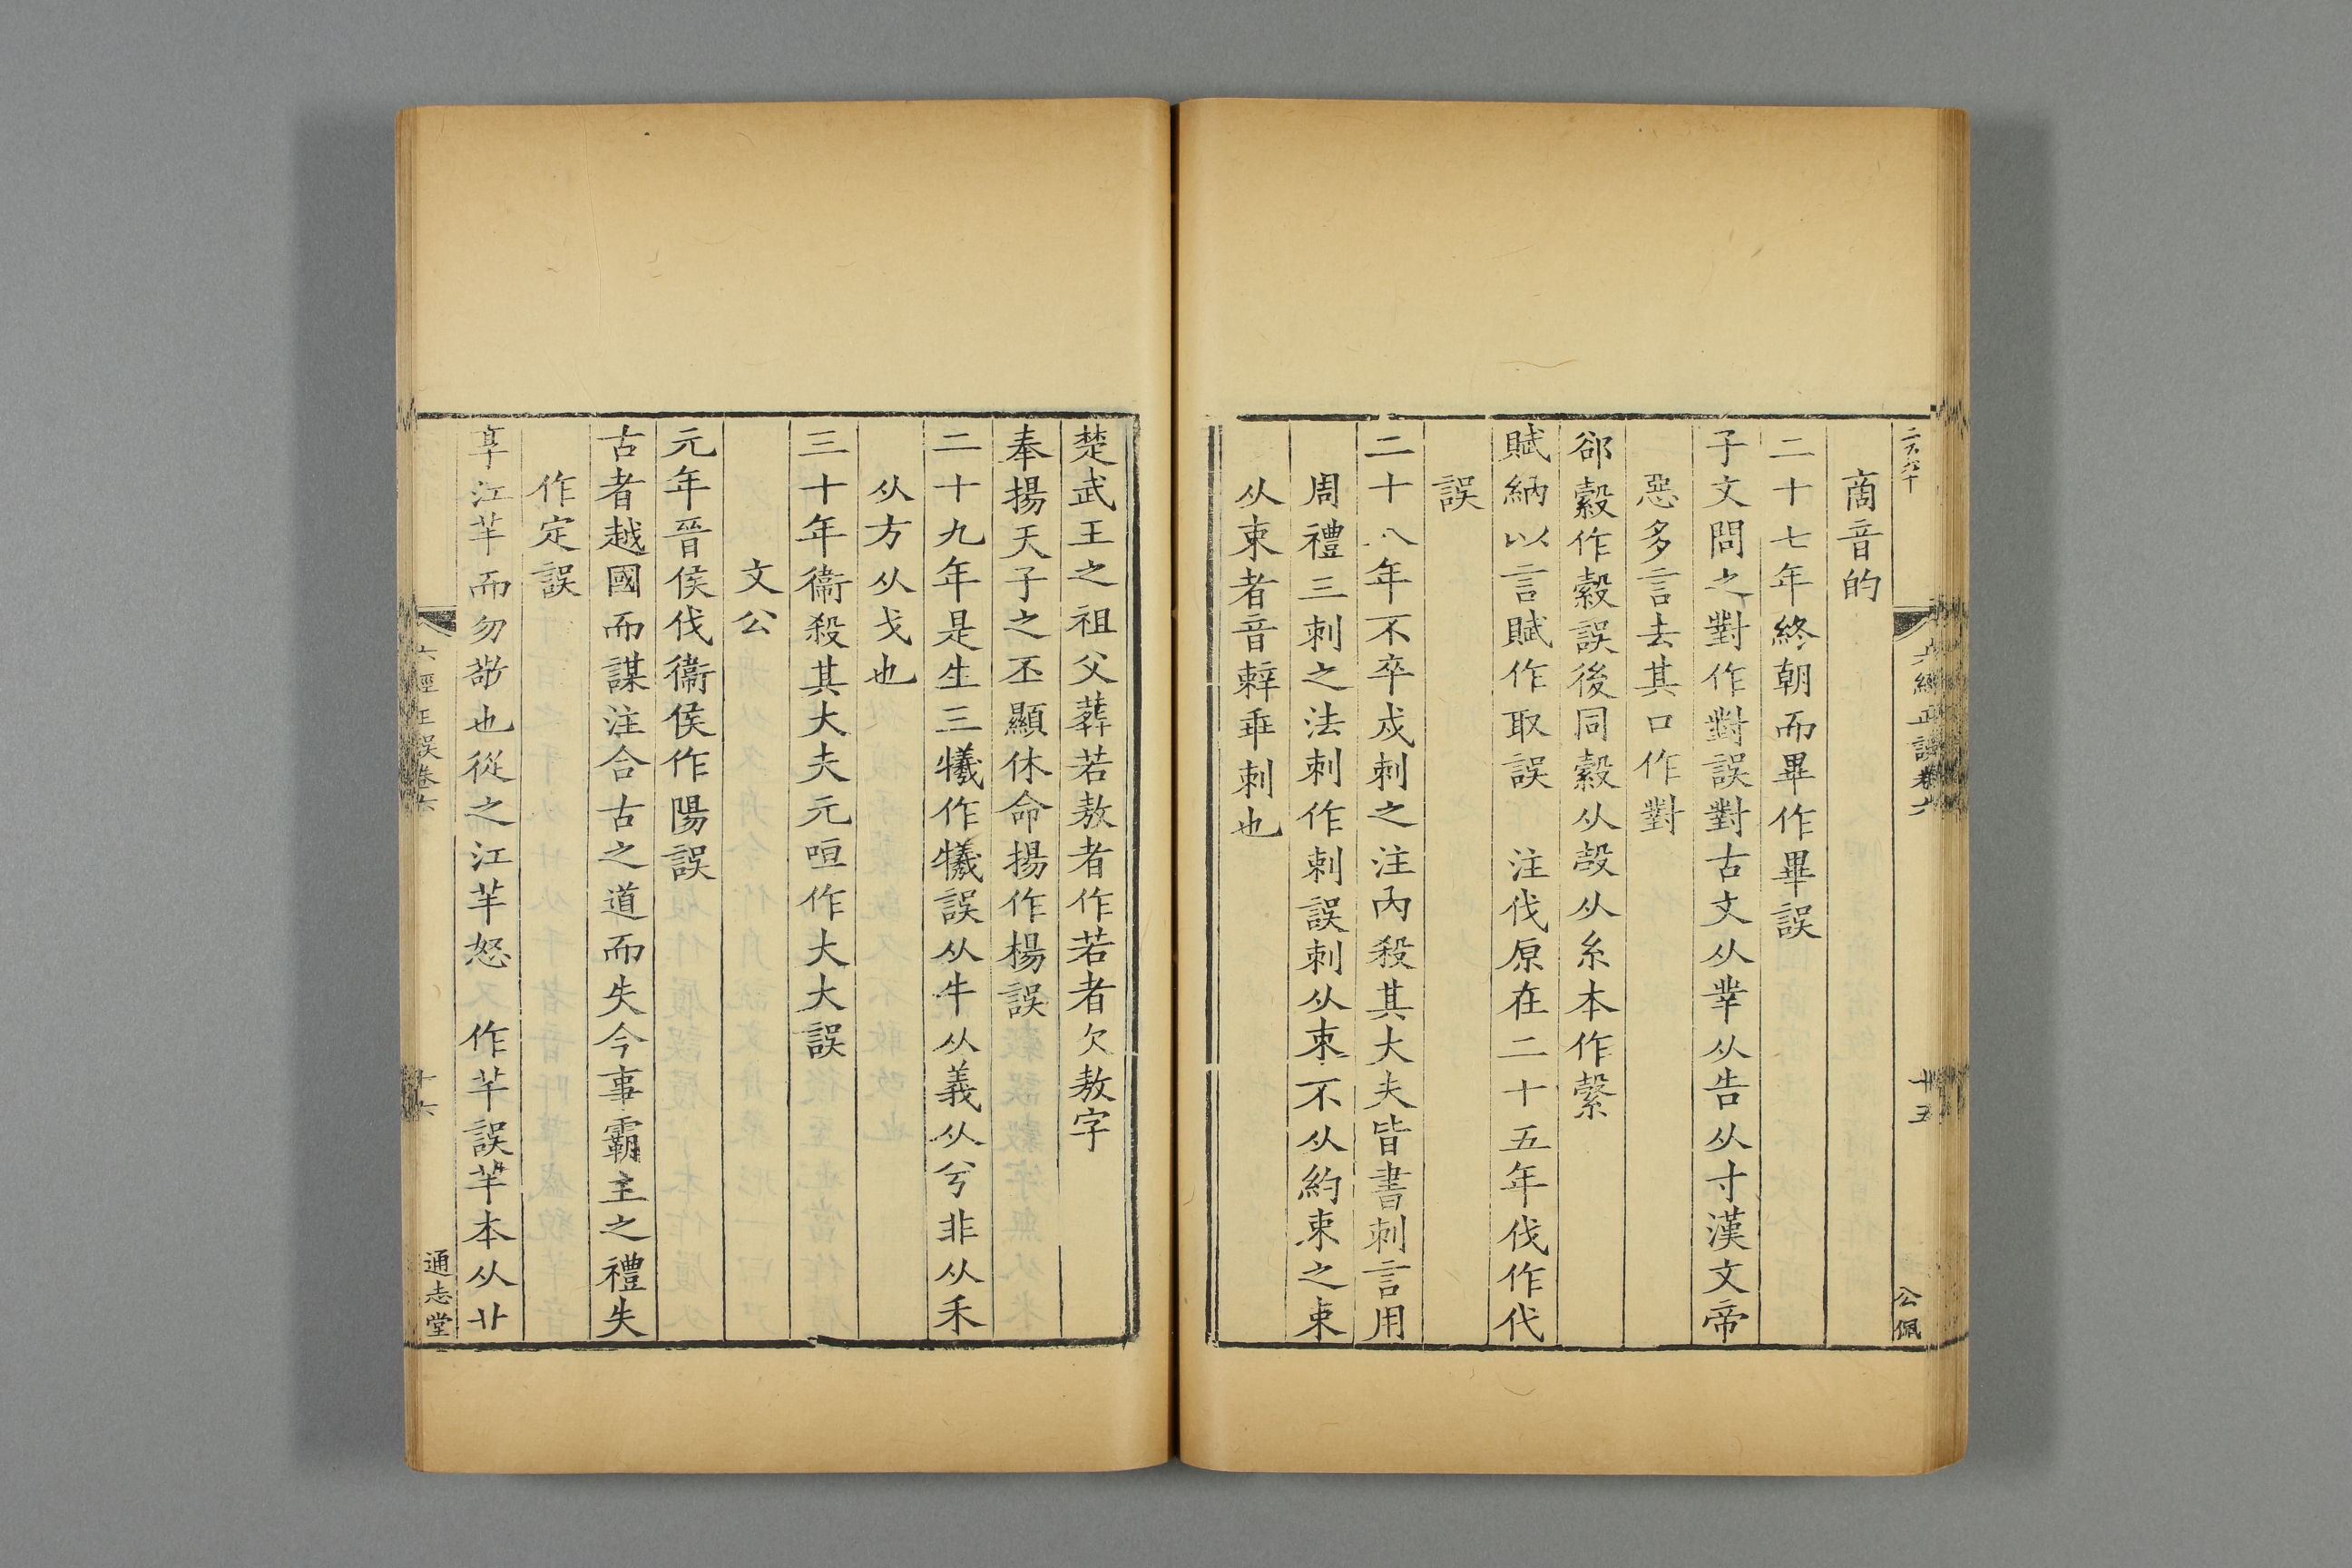 六經正誤卷六
公佩
啇音的
二十七年終朝而畢作畢誤
子文問之對作對誤對古文从丵从告从寸漢文帝
惡多言去其口作對
郤縠作縠誤後同縠从㱿从糸本作䋀
賦納以言賦作取誤 注伐原在二十五年伐作代
誤
二十八年不卒戍刺之注內殺其大夫皆書刺言用
周禮三刺之法刺作剌誤刺从朿不从約束之束
从束者音辢乖剌也
楚武王之祖父葬若敖者作若者欠敖字
奉揚天子之丕顯休命揚作楊誤
二十九年是生三犧作犧誤从牛从義从兮非从禾
从方从戈也
三十年衞殺其大夫元咺作大大誤
文公
元年晉侯伐衞侯作陽誤
古者越國而謀注合古之道而失今事霸主之禮失
作定誤
享江芈而勿敬也從之江芈怒 作芊誤芈本从𠁥
六經正誤卷六
十六
通志堂